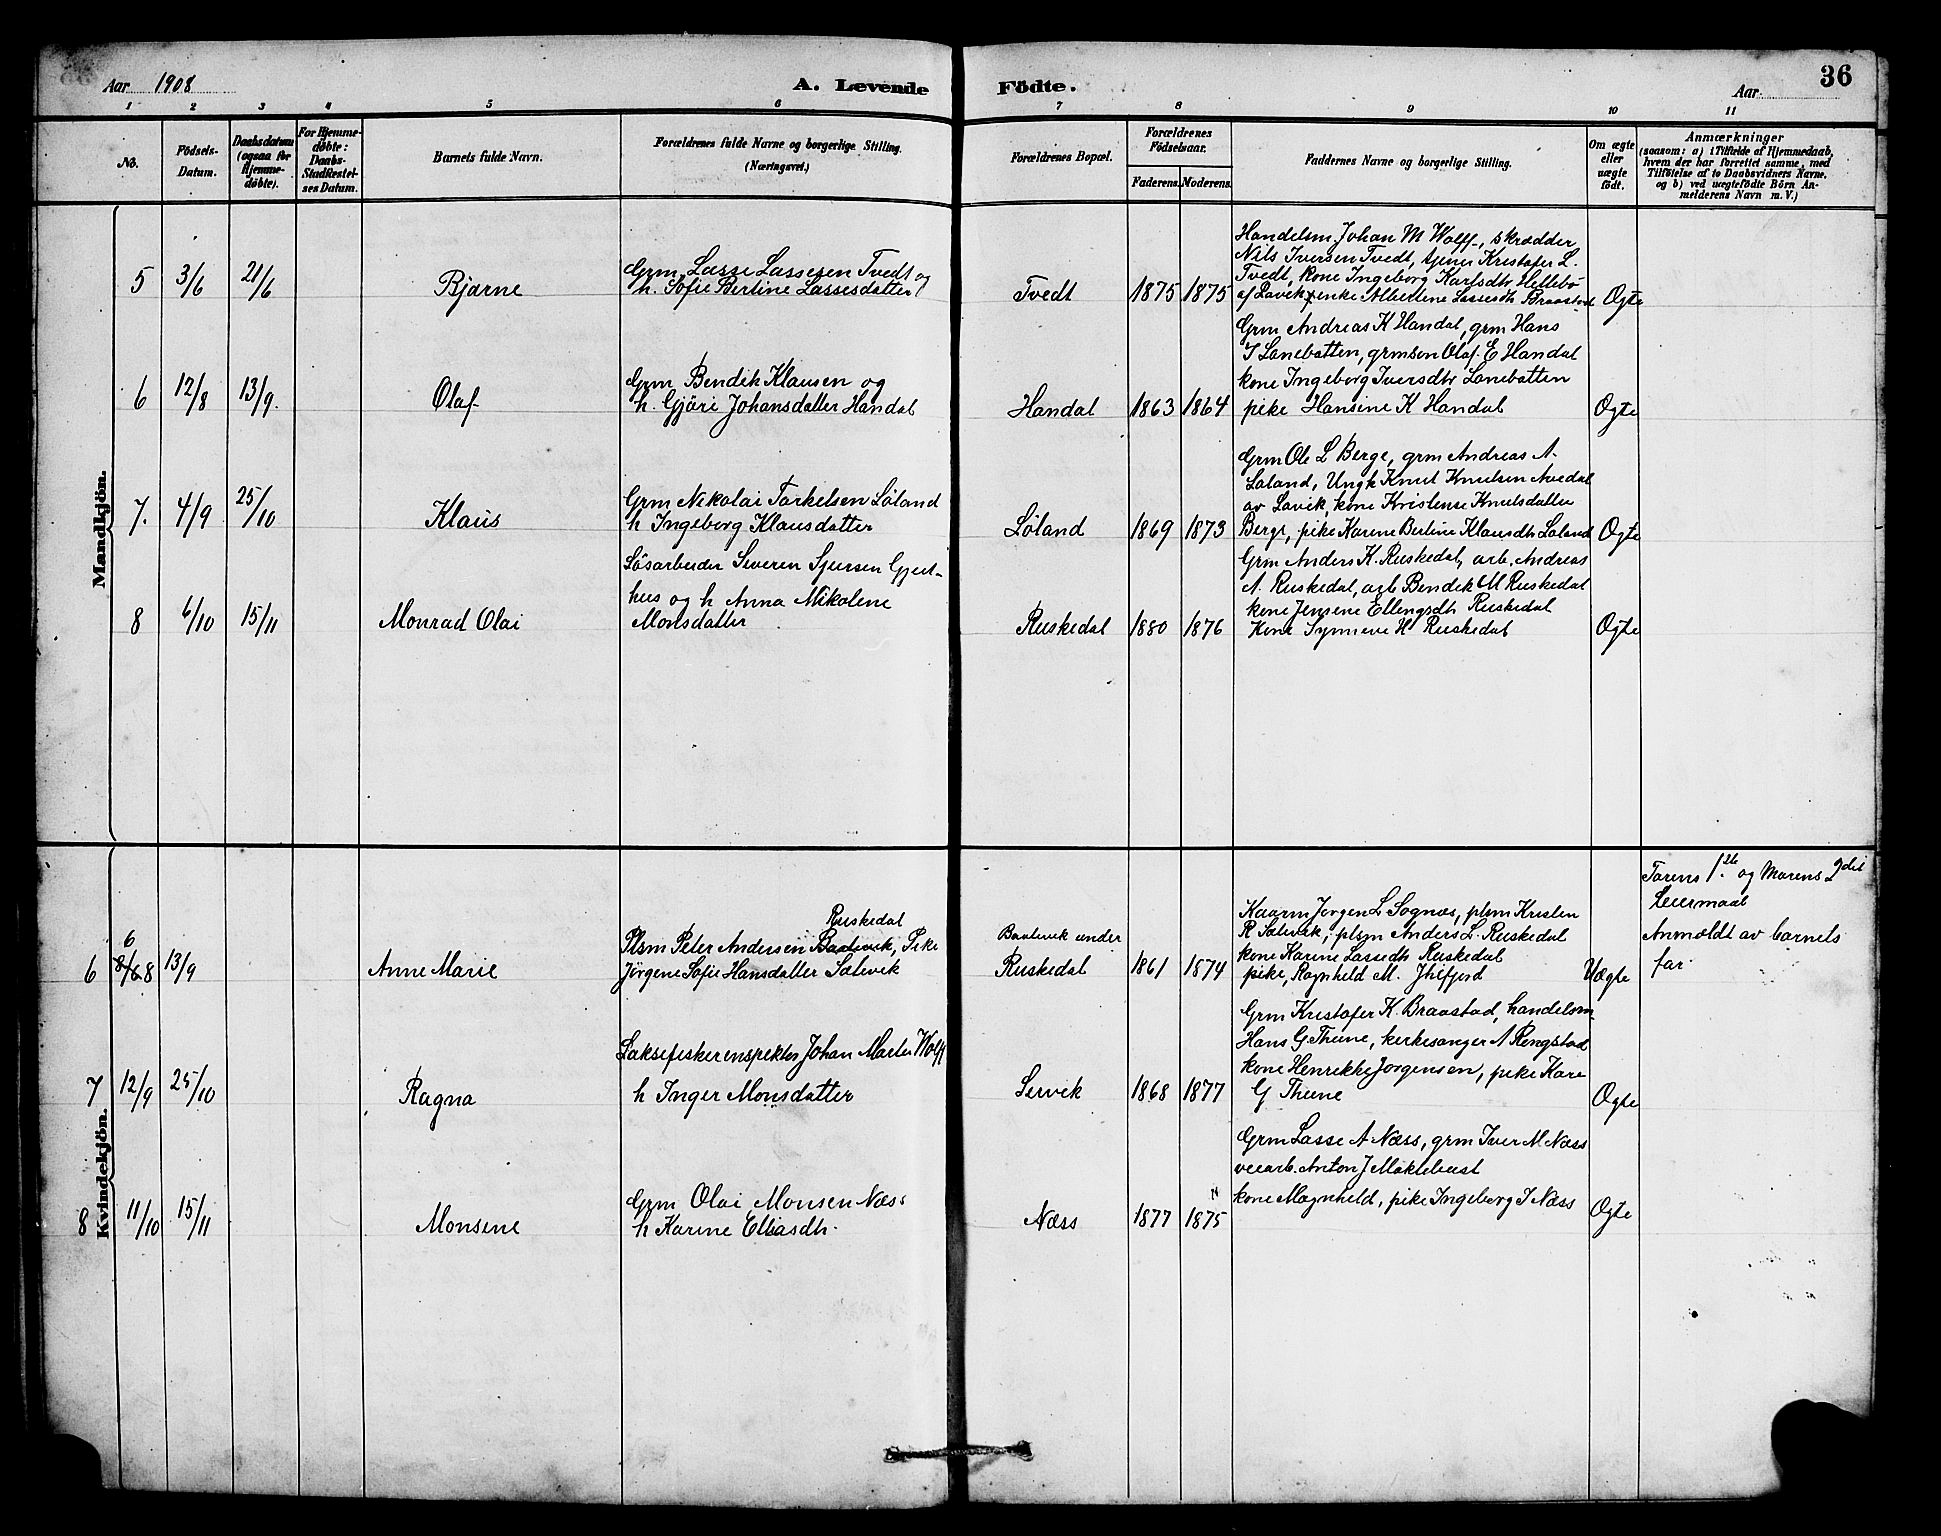 Aar 1908
A. Levende
Födte.
Aar
36
1 2 3 4 5 6 7 8 9 10 11
No.
Födsels-
Datum.
Daabsdatum
(ogsaa for
Hjemme-
døbte).
For Hjemme-
døbte:
Daabs-
Stadfæstel-
ses Datum.
Barnets fulde Navn.
Forældrenes fulde Navne og borgerlige Stilling.
(Næringsvei.)
Forældrenes Bopæl.
Forældrenes
Födselsaar.
Faderens.
Moderens.
Faddernes Navne og borgerlige Stilling.
Om ægte
eller
uægte
födt.
Anmærkninger
(saasom: a) i Tilfælde af Hjemmedaab,
hvem der har forrettet samme, med
Tilföielse af to Daabsvidners Navne.
og b) ved uægtefödte Börn An-
melderens Navn m. V.)
Mandkjön.
5 3/6 21/6 Bjarne
Grm Lasse Lassesen Tvedt og
h. Sofie Bertine Lassesdatter
Tvedt 1875 1875
Handelsm. Johan M Wolff, skrædder
Nils Iversen Tvedt, tjener Kristofer L.
Tvedt, kone Ingeborg Karlsdtr Hellebö
af Lavik, enke Albertine Lassesdtr Braastad
Ægte
6 12/8 13/9. Olaf
Grm Bendik Klausen og
h. Gjöri Johansdatter Handal
Handal 1863 1864
Grm Andreas K Handal, grm Hans
I Lanebatten, grmsøn Olaf E Handal
kone Ingeborg Iversdtr Lanebatten
pike Hansine K Handal
Ægte
7. 4/9 25/10 Klaus
Grm Nikolai Torkelsen Løland
h Ingeborg Klausdatter
Løland 1869 1873
Grm Ole L Berge, grm Andreas A.
Løland, Ungk Knut Knutsen Avedal
av Lavik, kone Kristense Knutsdatter
Berge, pike Karine Bertine Klausdtr Løland
Ægte
8 6/10 15/11 Monrad Olai
Løsarbeider Severin Sjursen Gjeit-
hus og h Anna Mikoline
Monsdatter
Ruskedal 1880 1876
Grm Anders K. Ruskedal, arb. Andreas
A. Ruskedal, arb Bendik M Ruskedal
kone Jensine Ellengsdtr Ruskedal
Kone Synneve H Ruskedal
Ægte
Kvindekjön.
6 6/8 13/9 Anne Marie
Ruskedal
Plsm Peter Andersen Baatevik, Pike
Jörgene Sofie Hansdatter Sætevik
Baatevik under
Ruskedal 1861 1874
Kaarm Jørgen L Sognæs, plsm Kristen
R Sætevik, plsm Anders L. Ruskedal
kone Karine Lassedtr Ruskedal
pike, Ragnhild M. Ihlfjord
Uægte
Farens 1ste og Morens 2det
Leiermaal
Anmældt av barnets
far.
7 12/9 25/10 Ragna
Laksefiskerinspektør Johan Martin Wolff
h Inger Monsdatter
Servik 1868 1877
Grm Kristofer K. Braastad, handelsm
Hans G Thune, kirkesanger A Ringstad
kone Henrikke Jorgensen, pike Kari
G Thune
Ægte
8 11/10 15/11 Monsine
Grm Olai Monsen Næss
h Karine Eliasdtr.
Næss 1877 1875
Grm Lasse A Næss, grm Iver M. Næss
veiarb. Anton J Maklebust
kone Magnhild, pike Ingeborg I Næss
Ægte